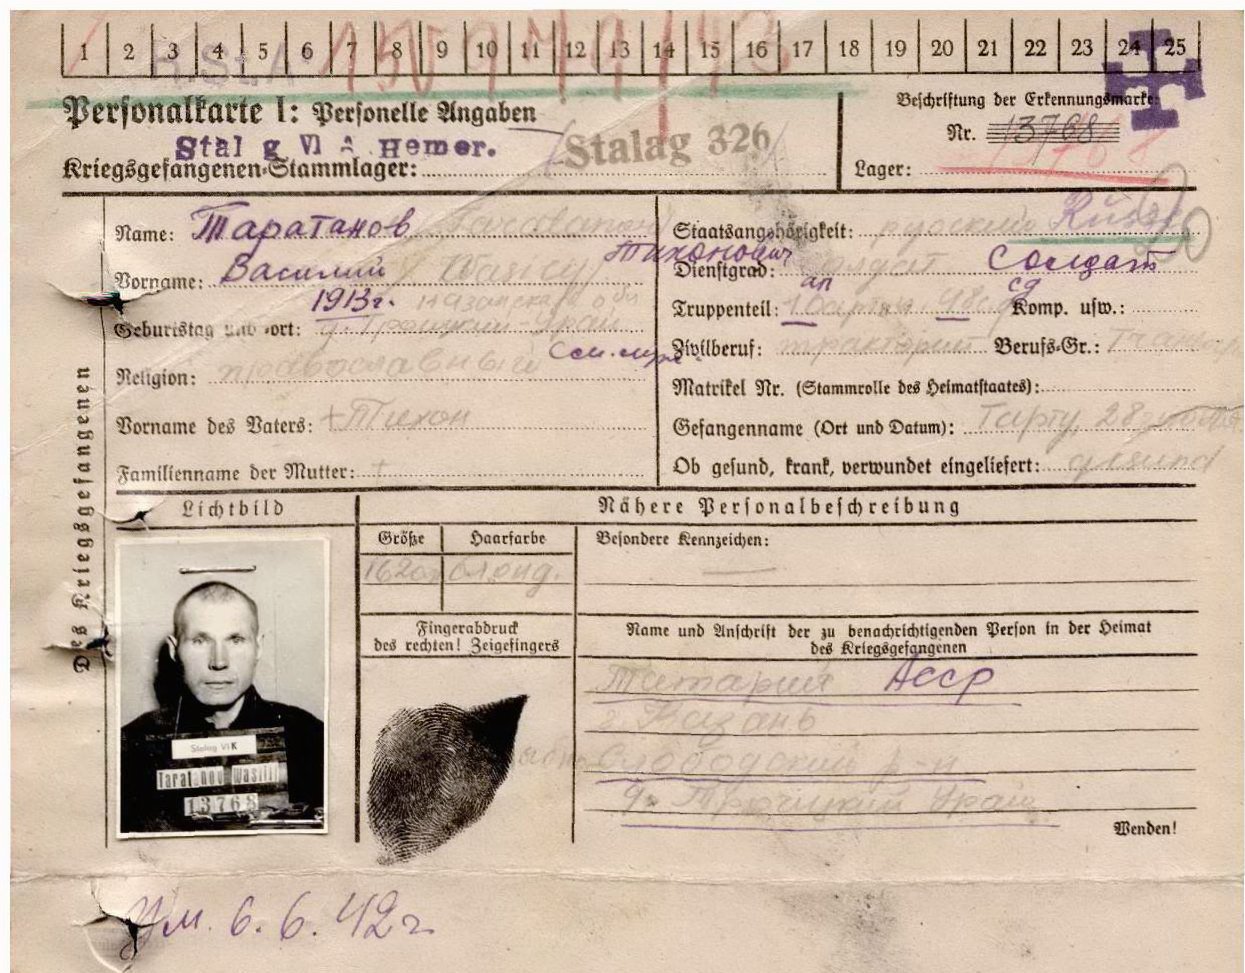 1 2 3 4 5 6 7 8 9 10 11 12 13 14 15 16 17 18 19 20 21 22 23 24 25
Personalkarte I: Personelle Angaben
Beschriftung der Erkennungsmarke:
Stalag VI A Hemer.
Stalag 326
Nr. 13768
Kriegsgefangenen-Stammlager:
Lager: 13768
Des Kriegsgefangenen
Name: Таратанов
Staatsangehörigkeit: русский
Тихонович
Vorname: Василий Wasily
Dienstgrad: солдат Солдат
1913г.
ап сд
Truppenteil: Komp. usw.:
Geburtstag und -ort: д. Троицкий-Урай
Zivilberuf: Berufs-Gr.:
Religion: православный
Matrikel Nr. (Stammrolle des Heimatstaates):
Vorname des Vaters: +Тихон
Gefangenname (Ort und Datum): Тарту, 28
Familienname der Mutter: +
Ob gesund, krank, verwundet eingeliefert: gesund
Lichtbild
Nähere Personalbeschreibung
Größe Haarfarbe
Besondere Kennzeichen: —
162 блонд.
Fingerabdruck
des rechten! Zeigefingers
Name und Anschrift der zu benachrichtigenden Person in der Heimat
des Kriegsgefangenen
Татария АССР
г. Казань
слободский р-н
д. Троицкий Урай
Stalag VI K
Taratanov Wasili
13768
Wenden!
Ум. 6.6.42г